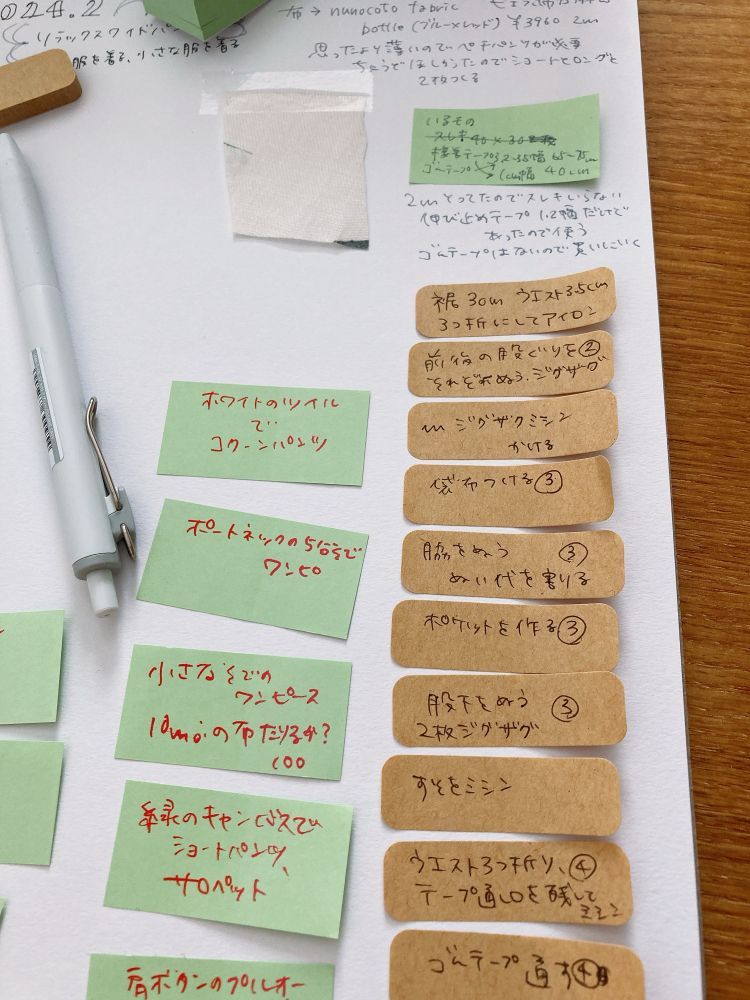 024.2
リラックスワイドパン
服を着る、小さな服を着る
布→nunocoto fabric
bottle(ブルーメレッド) ¥3960 2m
思ったより薄いのでペチパンツが必要
ちょうどほしかったのでショートとロングと
2枚つくる
いるもの
スレキ 40×30
接着テープ
ゴムテープ
1cm幅 40cm
2mとってたのでスレキいらない
伸び止めテープ 1.2幅だけど
あったので使う
ゴムテープはないので買いにいく
裾3cm ウエスト3.5cm
3つ折にしてアイロン
前後の股ぐりを②
それぞれぬう、ジグザグ
ジグザグミシン
かける
袋布つける③
脇をぬう ③
ぬい代を割りる
ポケットを作る③
股下をぬう ③
2枚ジグザグ
すそをミシン
ウエスト3つ折り、④
テープ通し口を残して
ミシン
ゴムテープ 通す④
ホワイトのツイル
で
コクーンパンツ
ボートネックの5分そで
ワンピ
小さなそでの
ワンピース
の布たりるか?
100
緑のキャンバスで
ショートパンツ、
サロペット
肩ボタンのプルオー